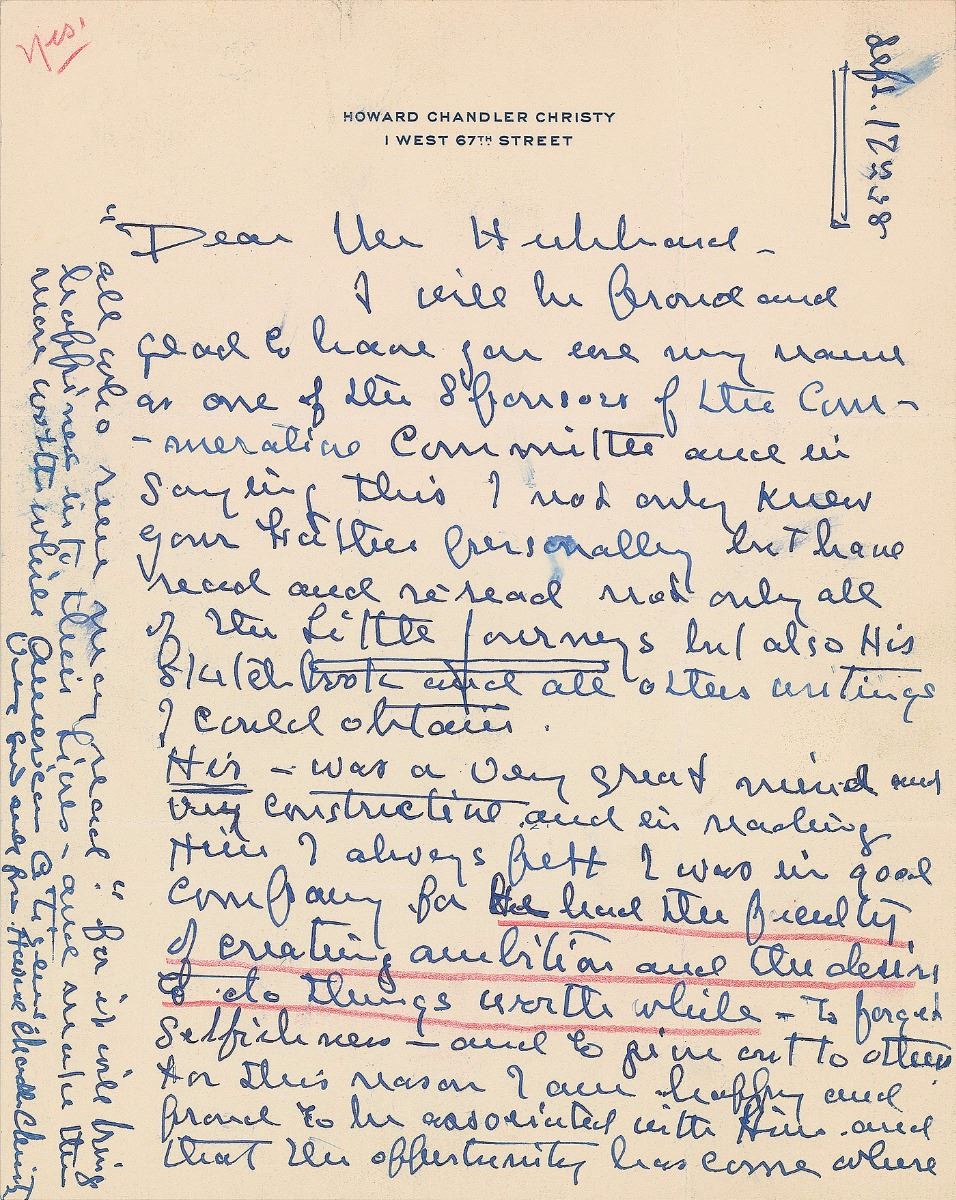 Yes!
Sept. 17 1938
HOWARD CHANDLER CHRISTY
1 WEST 67TH STREET
"Dear Mr Hubbard -
I will be proud and
glad to have you use my name
as one of the Sponsors of the Com-
-merative Committee and in
Saying this I not only knew
your Father personally but have
read and re-read not only all
of the Little Journeys but also His
Scratch book and all other writings
I could obtain.
His - was a very great mind and
very constructive and in reading
Him I always felt I was in good
company for He had the faculty
of creating ambition and the desire
to do things worth while - To forget
selfishness - and to give out to others
For this reason I am happy and
proud to be associated with Him and
that the opportunity has come where
all who read may read." for it will bring
happiness into their lives - and make them
more worth while American Citizens
Ever and ever from Howard Chandler Christy